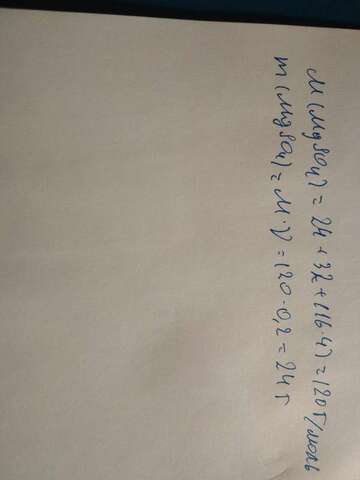 M(MgSO4) = 24 + 32 + (16·4) = 120 г/моль
m(MgSO4) = M·ν = 120·0,2 = 24 г